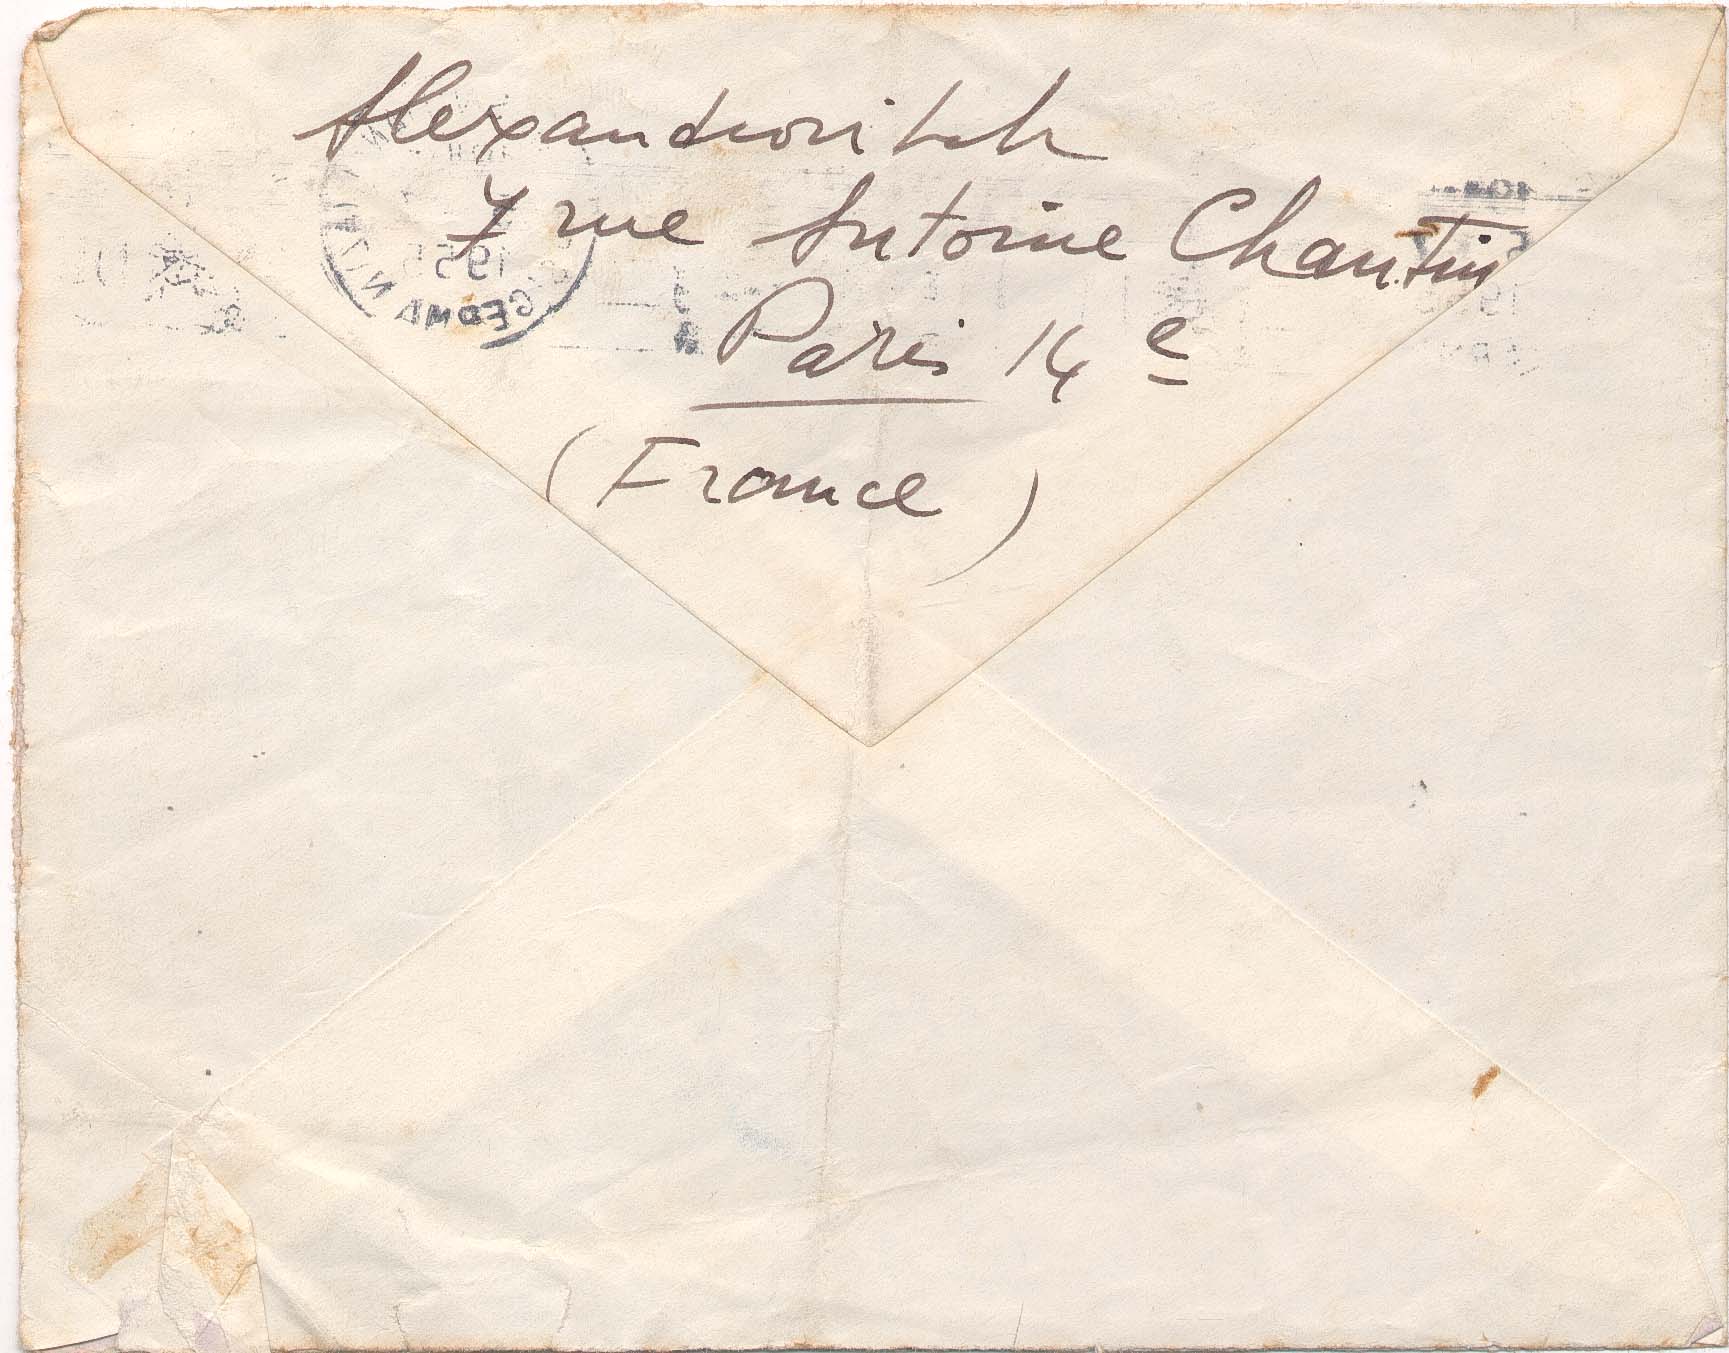 Alexandrovitch
7 rue Antoine Chantin
Paris 14 e
(France)
1955